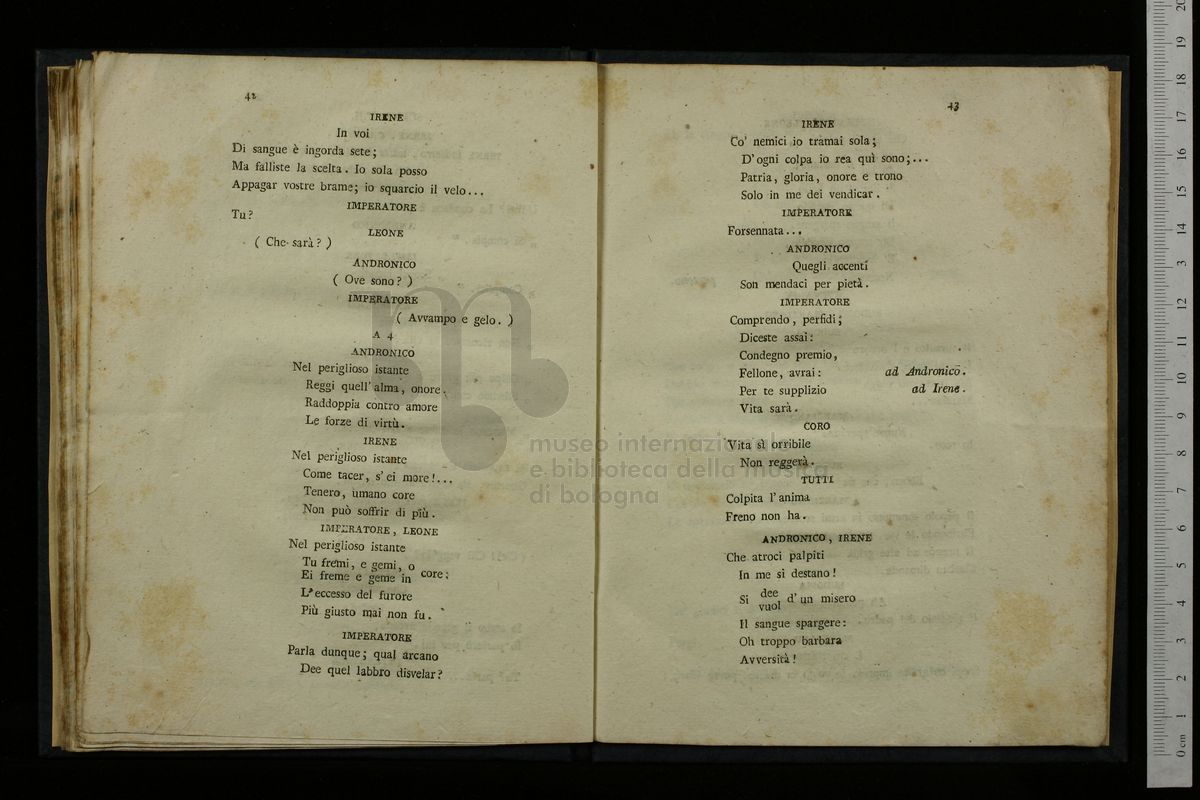 42
IRENE
In voi
Di sangue è ingorda sete;
Ma falliste la scelta. Io sola posso
Appagar vostre brame; io squarcio il velo...
IMPERATORE
Tu?
LEONE
( Che sarà? )
ANDRONICO
( Ove sono? )
IMPERATORE
( Avvampo e gelo. )
A 4
ANDRONICO
Nel periglioso istante
Reggi quell' alma, onore.
Raddoppia contro amore
Le forze di virtù.
IRENE
Nel periglioso istante
Come tacer, s' ei more!...
Tenero, umano core
Non può soffrir di più.
IMPERATORE, LEONE
Nel periglioso istante
Tu fremi, e gemi, o
Ei freme e geme in core:
L' eccesso del furore
Più giusto mai non fu.
IMPERATORE
Parla dunque; qual arcano
Dee quel labbro disvelar?
43
IRENE
Co' nemici io tramai sola;
D' ogni colpa io rea quì sono;...
Patria, gloria, onore e trono
Solo in me dei vendicar.
IMPERATORE
Forsennata...
ANDRONICO
Quegli accenti
Son mendaci per pietà.
IMPERATORE
Comprendo, perfidi;
Diceste assai:
Condegno premio,
Fellone, avrai: ad Andronico.
Per te supplizio ad Irene.
Vita sarà.
CORO
Vita sì orribile
Non reggerà.
TUTTI
Colpita l' anima
Freno non ha.
ANDRONICO, IRENE
Che atroci palpiti
In me si destano!
Si dee d' un misero
vuol
Il sangue spargere:
Oh troppo barbara
Avversità!
museo internazionale
e biblioteca della musica
di bologna
0 cm 1 2 3 4 5 6 7 8 9 10 11 12 13 14 15 16 17 18 19 20